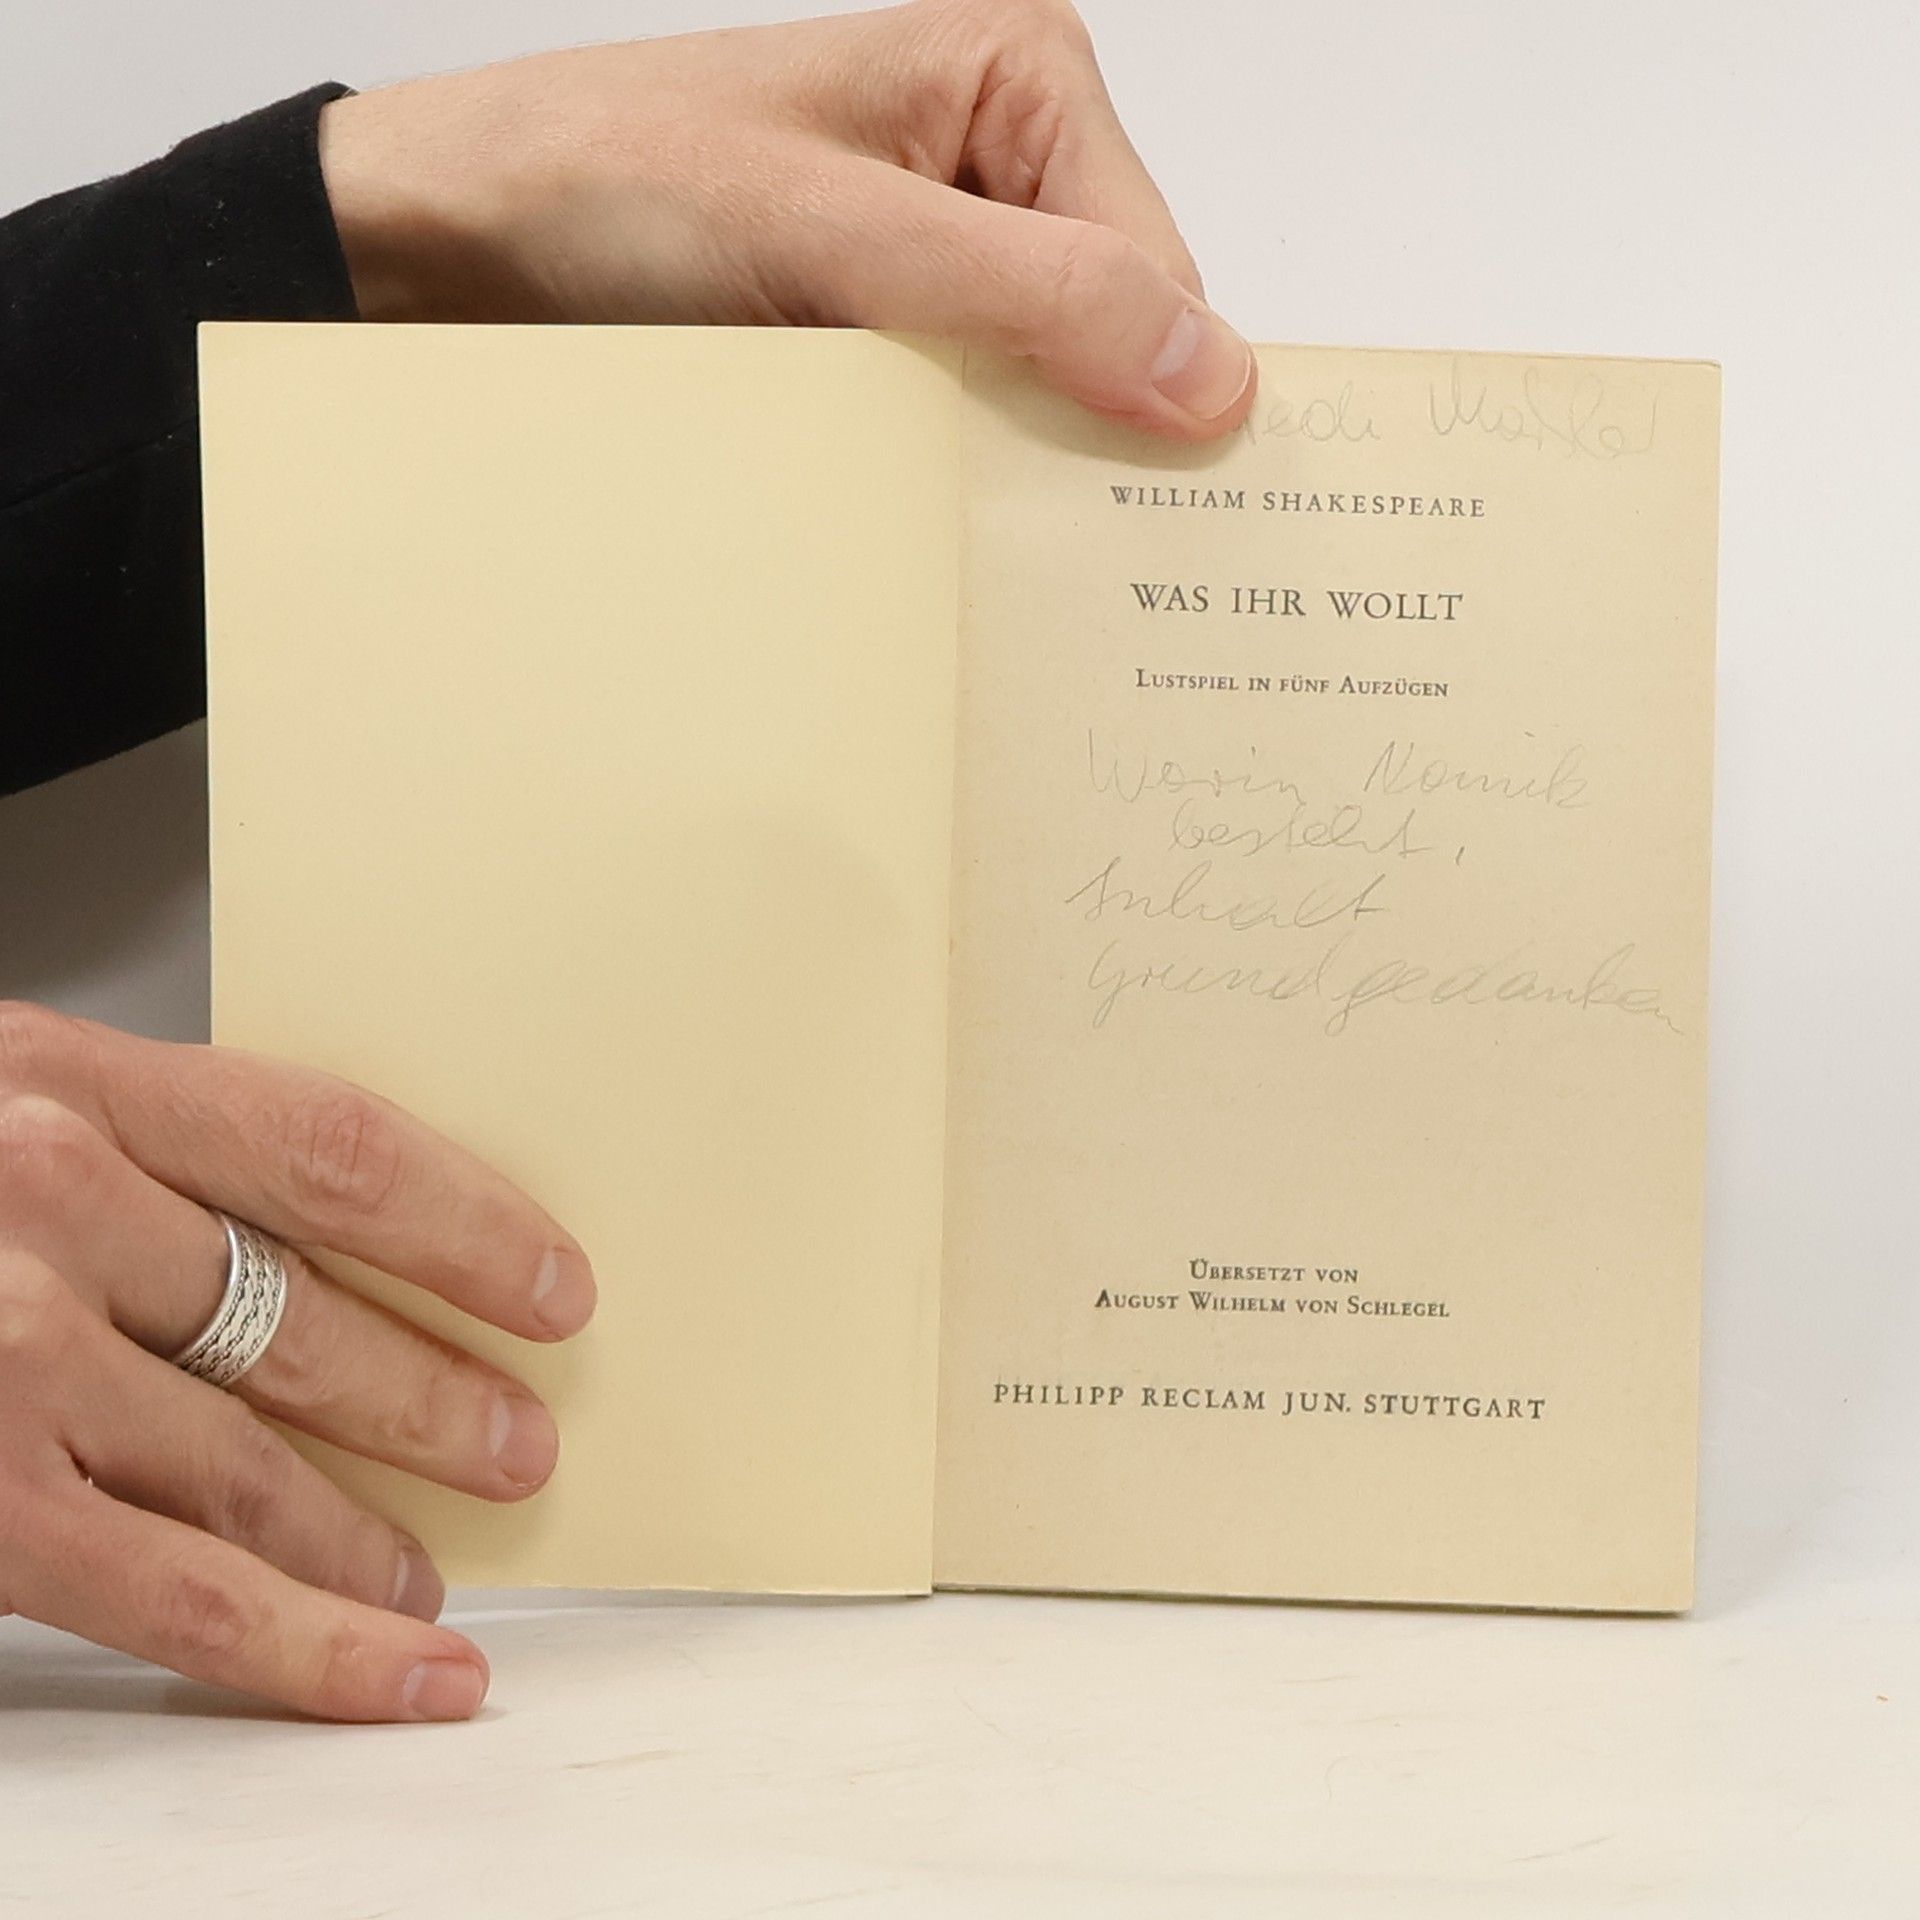 WILLIAM SHAKESPEARE
WAS IHR WOLLT
LUSTSPIEL IN FÜNF AUFZÜGEN
Worin Komik
besteht,
Inhalt
Grundgedanken
ÜBERSETZT VON
AUGUST WILHELM VON SCHLEGEL
PHILIPP RECLAM JUN. STUTTGART